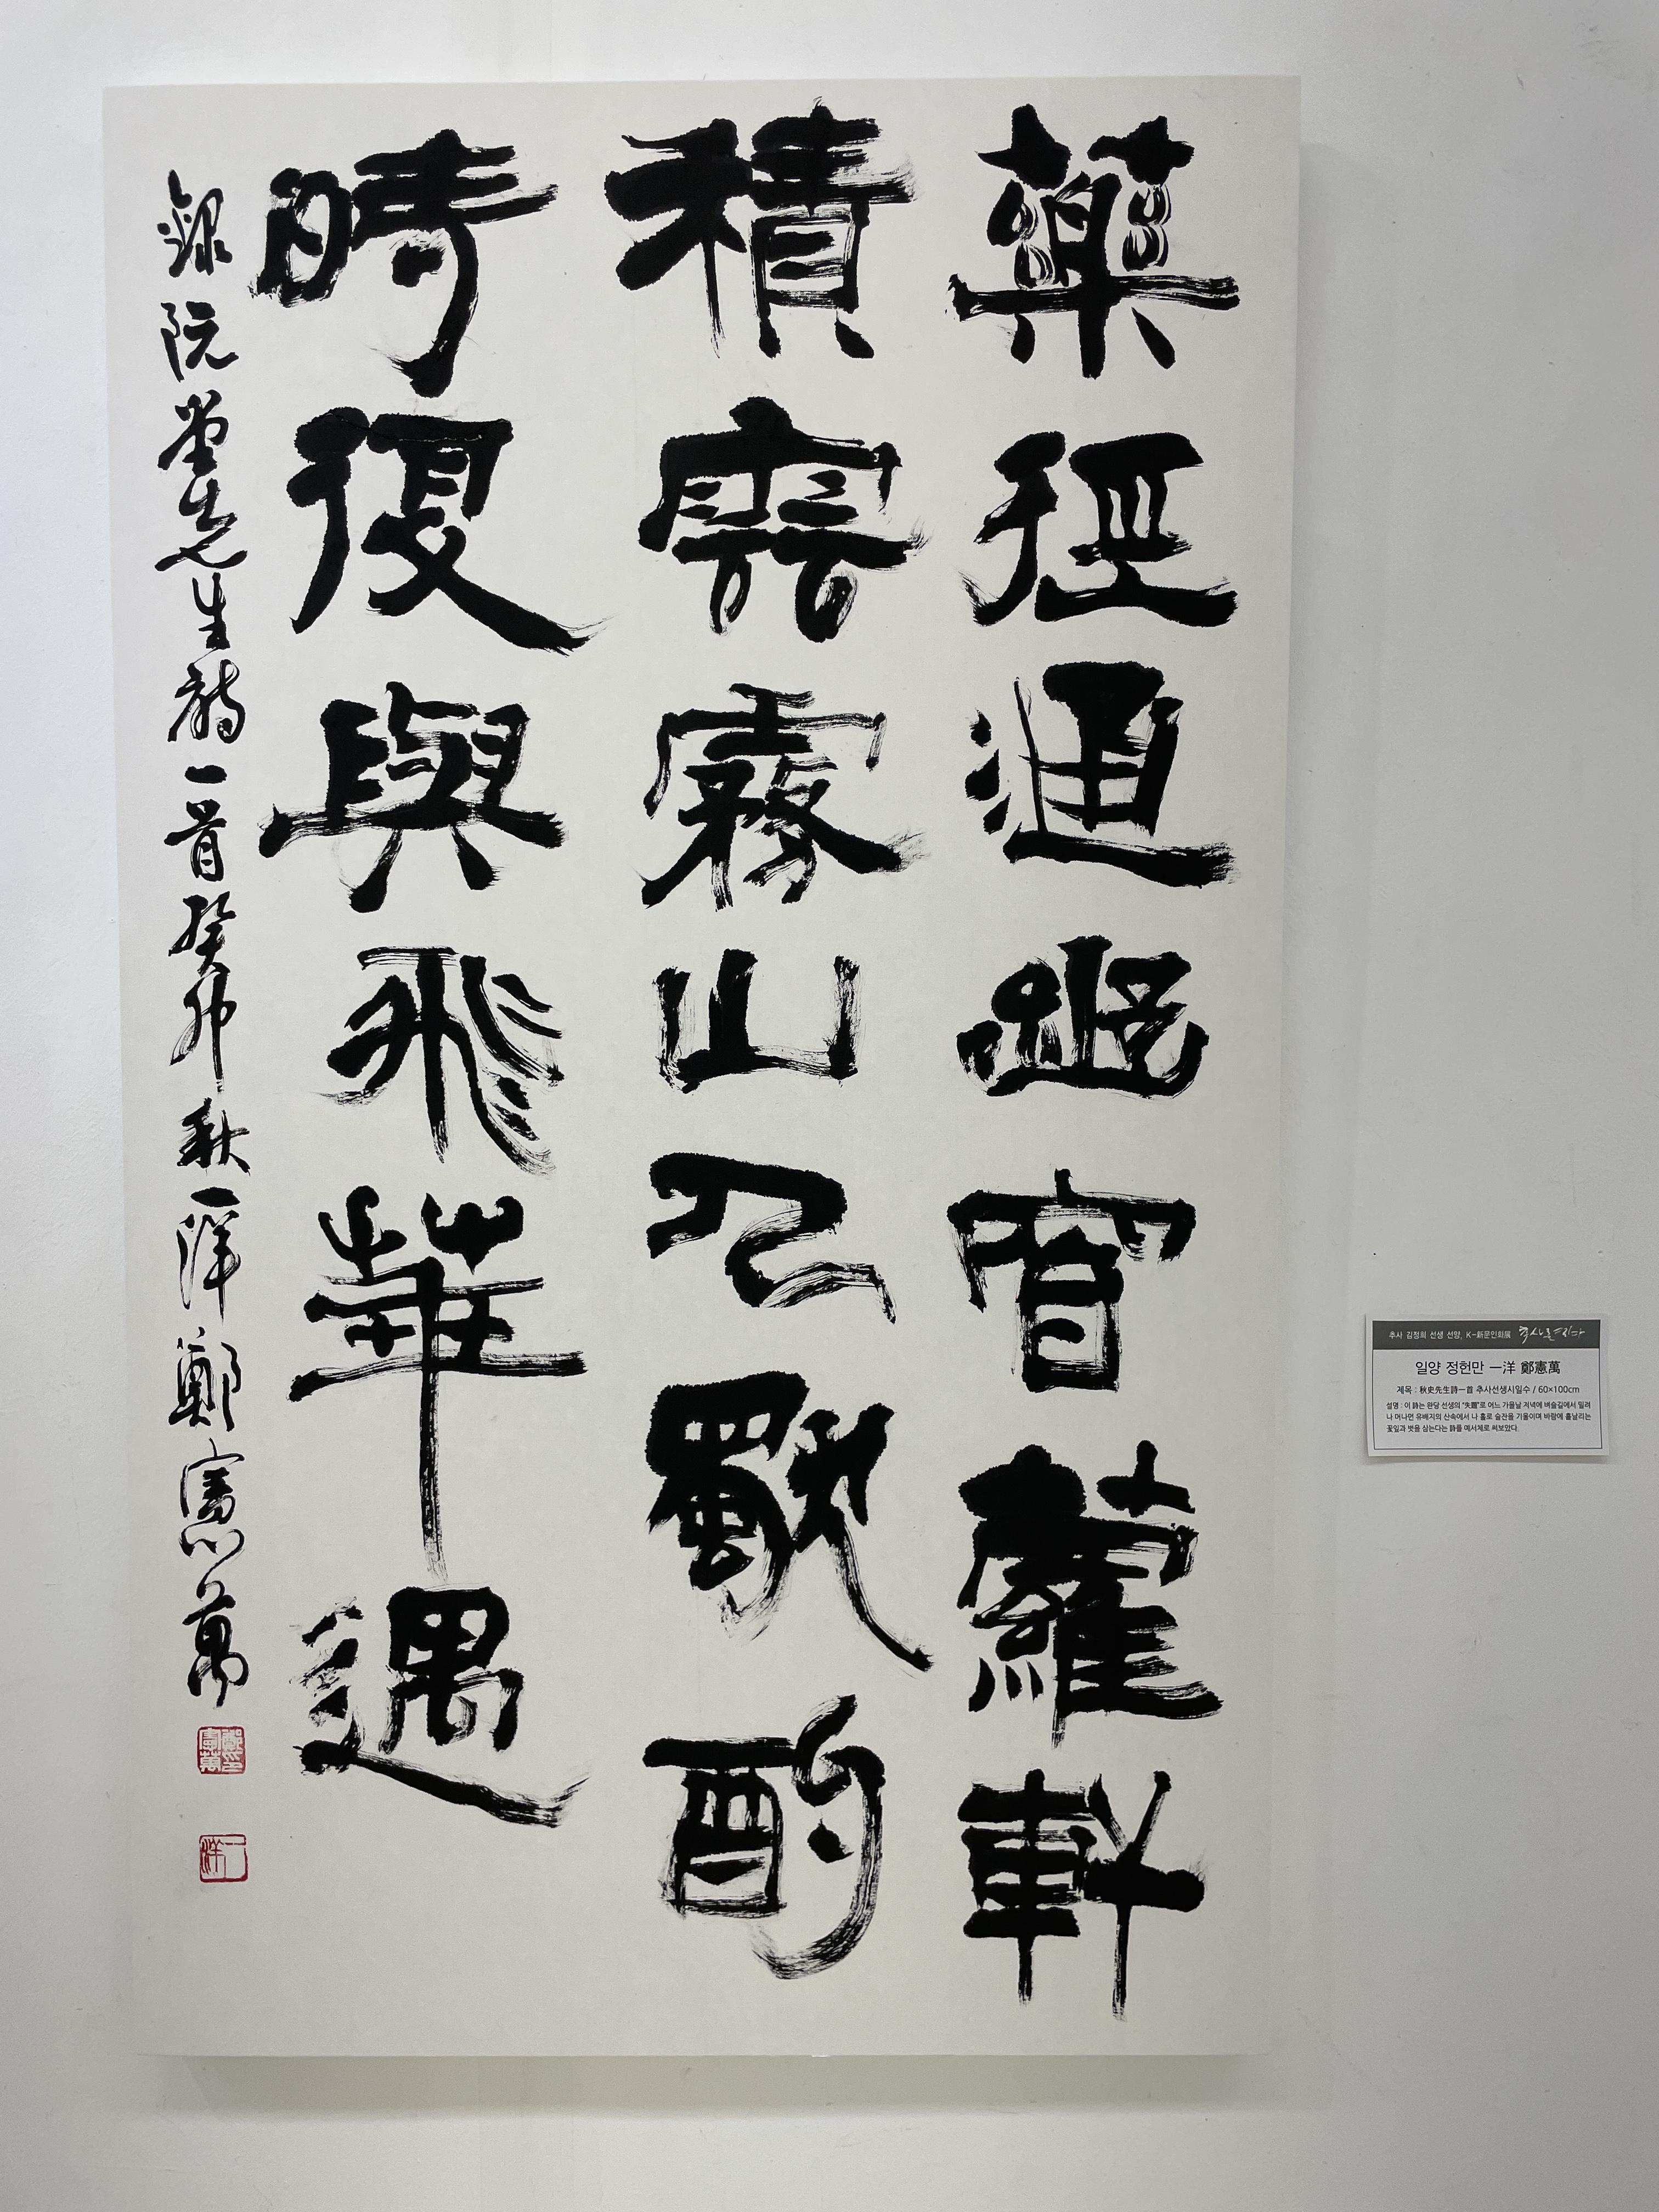 藥徑通幽窅蘿軒
積雲霧山人獨酌
時復與飛華遇
錄阮堂先生詩一首 癸卯秋 一洋 鄭憲萬
一洋
추사 김정희 선생 선양, K-新문인화展
일양 정헌만 一洋 鄭憲萬
제목 : 秋史先生詩一首 추사선생시일수 / 60×100cm
설명 : 이 詩는 완당 선생의 "失題"로 어느 가을날 저녁에 벼슬길에서 밀려
나 머나먼 유배지의 산속에서 나 홀로 술잔을 기울이며 바람에 흩날리는
꽃잎과 벗을 삼는다는 詩를 예서체로 써보았다.